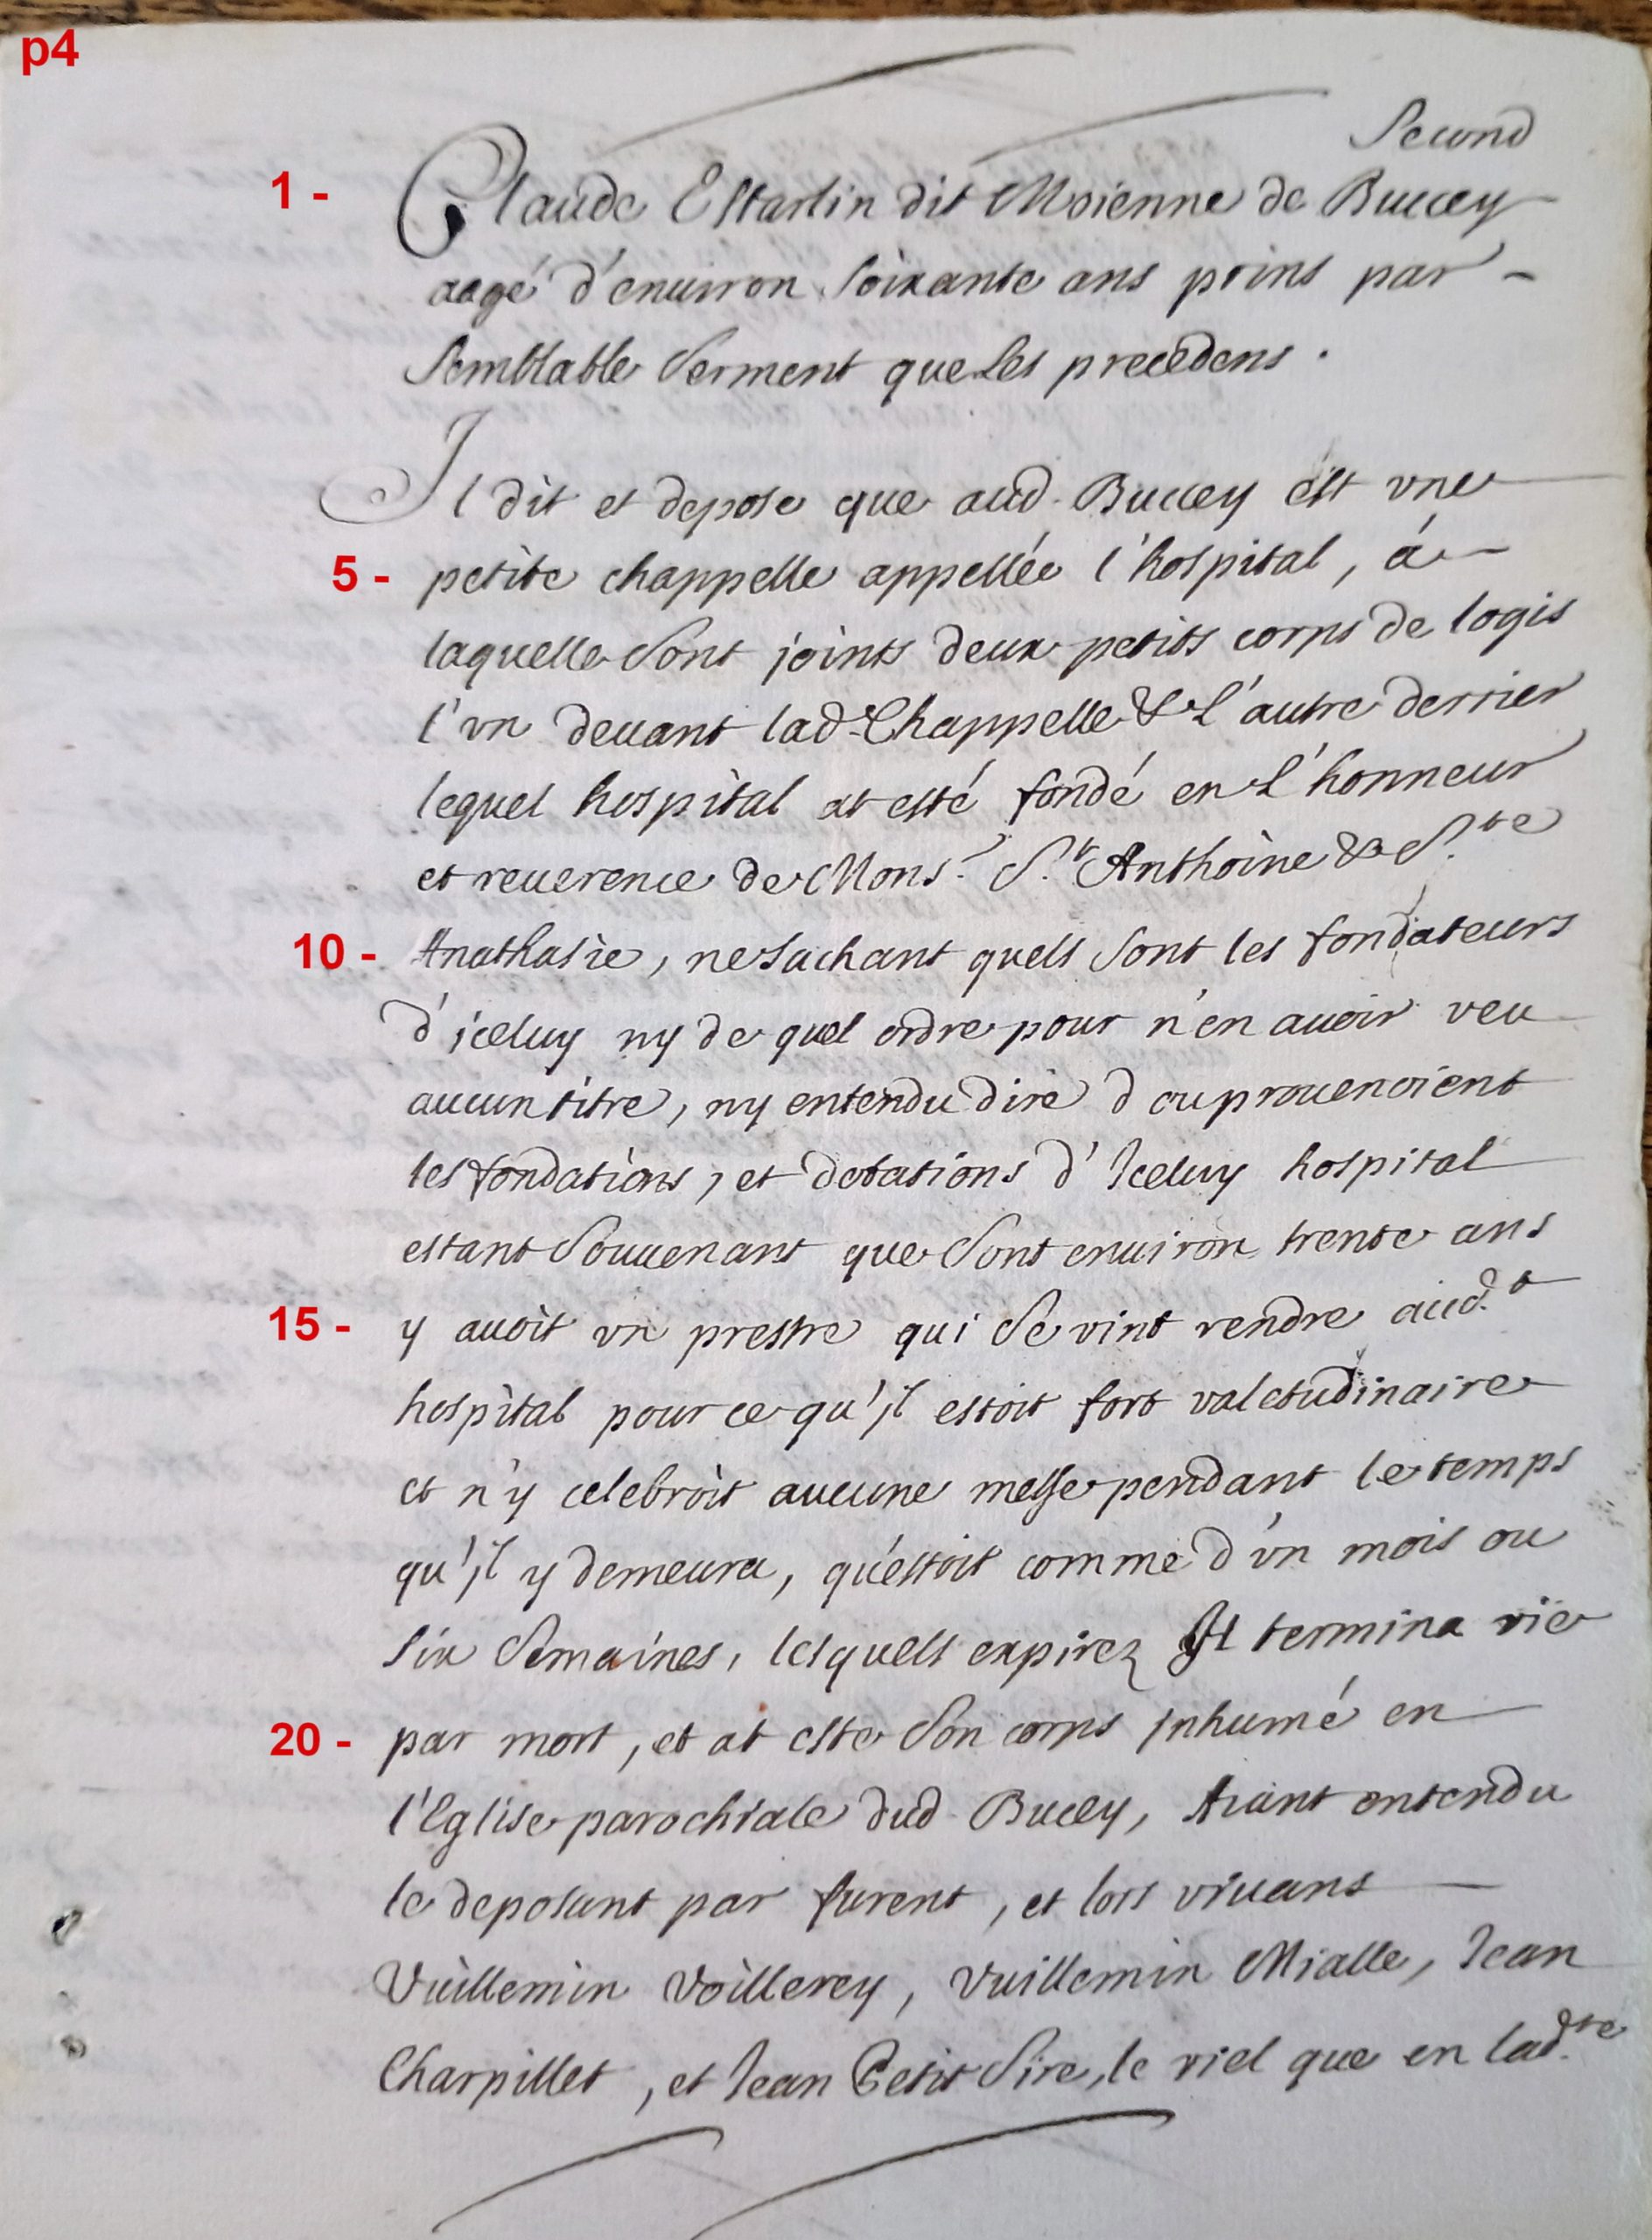 p4
Second
1 - Claude Estarlin dit Moienne de Buccey
aagé d'enuiron soixante ans prins par -
semblable serment que les precedens .
Il dit et depose que aud. Buccey est vne
5 - petite chappelle appellée l'hospital, á
laquelle sont joints deux petits corps de logis
l'vn deuant lad. Chappelle & l'autre derrier
lequel hospital at esté fondé en l'honneur
et reuerence de Mons.r S.t Anthoine & S.te
10 - Anathasie, ne sachant quels sont les fondateurs
d'jceluy ny de quel ordre pour n'en auoir veu
aucun titre, ny entendu dire d ou prouenoient
les fondations, et dotations d'Iceluy hospital
estant souuenant que sont enuiron trente ans
15 - y auoit vn prestre qui se vint rendre aud.t
hospital pour ce qu'jl estoit fort valetudinaire
et n'y celebroit aucune messe pendant le temps
qu'jl y demeura, qu'estoit comme d'vn mois ou
six semaines, lesquels expirez Il termina vie
20 - par mort, et at este son corps jnhumé en
l'Eglise parochiale dud. Buccy, Aiant entendu
le deposant par furent, et lors viuans
Vuillemin Voillerey, Vuillemin Mialle, Jean
Charpillet, et Jean Petit Sire, le viel que en lad.te